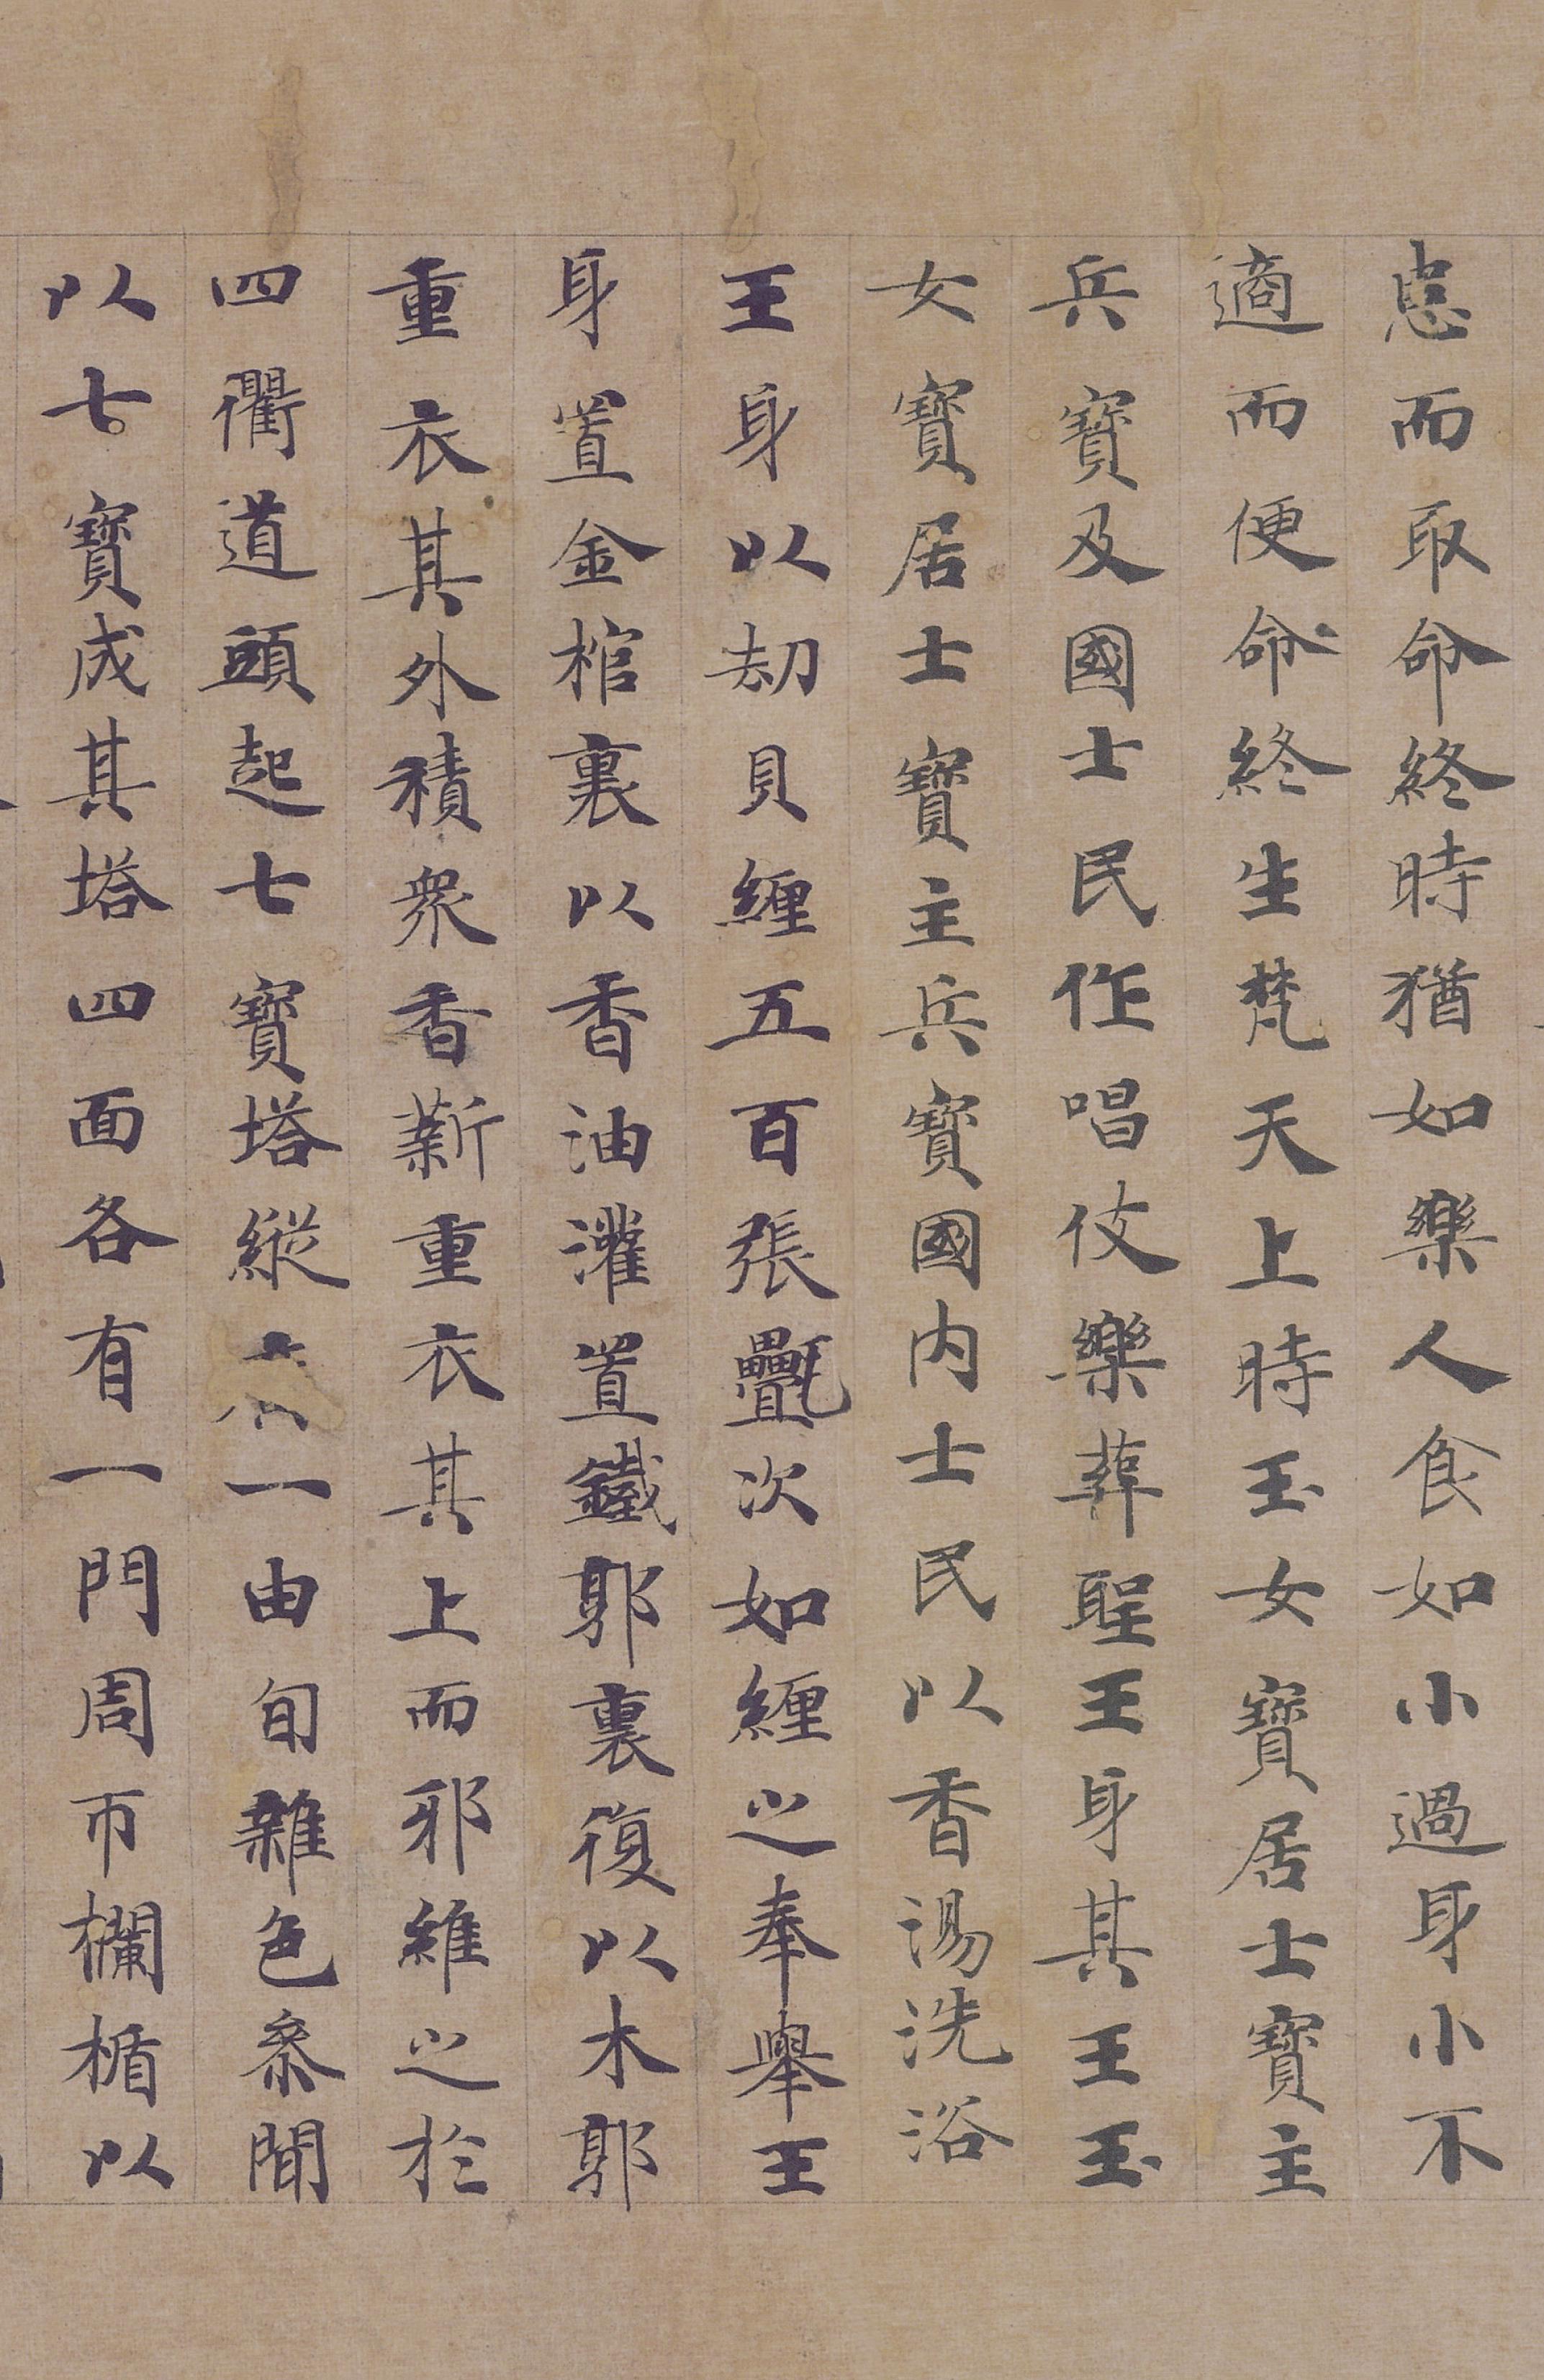 患而取命終時猶如樂人食如小過身小不
適而便命終生梵天上時玉女寶居士寶主
兵寶及國士民作唱伎樂葬聖王身其王玉
女寶居士寶主兵寶國内士民以香湯洗浴
王身以劫貝纏五百張㲲次如纏之奉舉王
身置金棺裏以香油灌置鐵郭裏復以木郭
重衣其外積衆香薪重衣其上而耶維之於
四衢道頭起七寶塔縱一由旬雜色參間
以七寶成其塔四面各有一門周帀欄楯以